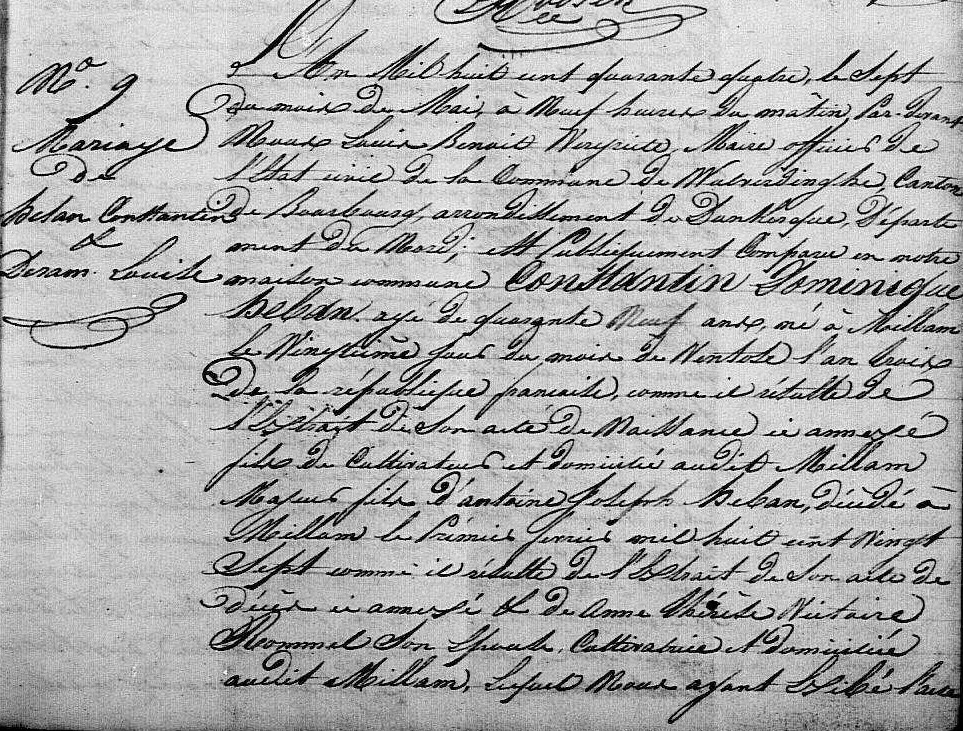 N.o 9
Mariage
De
Beban Constantin
&
Deram. Louise
L'An Mil huit cent quarante quatre, le Sept
du mois de Mai, à Neuf heures du matin, Par-devant
Nous Louis Benoit, Maire officier de
l'Etat civil de la Commune de Wulverdinghe, Canton
de Bourbourg, arrondissement de Dunkerque, Départe
ment du Nord; est Publiquement Comparu en notre
maison commune Constantin Dominique
Beban. agé de quarante Neuf ans, né à Millam
le Vingtième jour du mois de Ventose l'an trois
De la république francaise, comme il résulte de
l'Extrait de Son acte de Naissance ci annexé
fils de Cultivateur et domicilié audit Millam
Majeur fils d'antoine Joseph Beban, décédé à
Millam le Prémier mil huit cent Vingt
Sept comme il résulte de l'Extrait de Son acte de
décès ci annexé & de Anne Thérèse Victoire
Rommel Son Epouse, Cultivatrice et domiciliée
audit Millam, Lequel Nous ayant Exibé l'acte